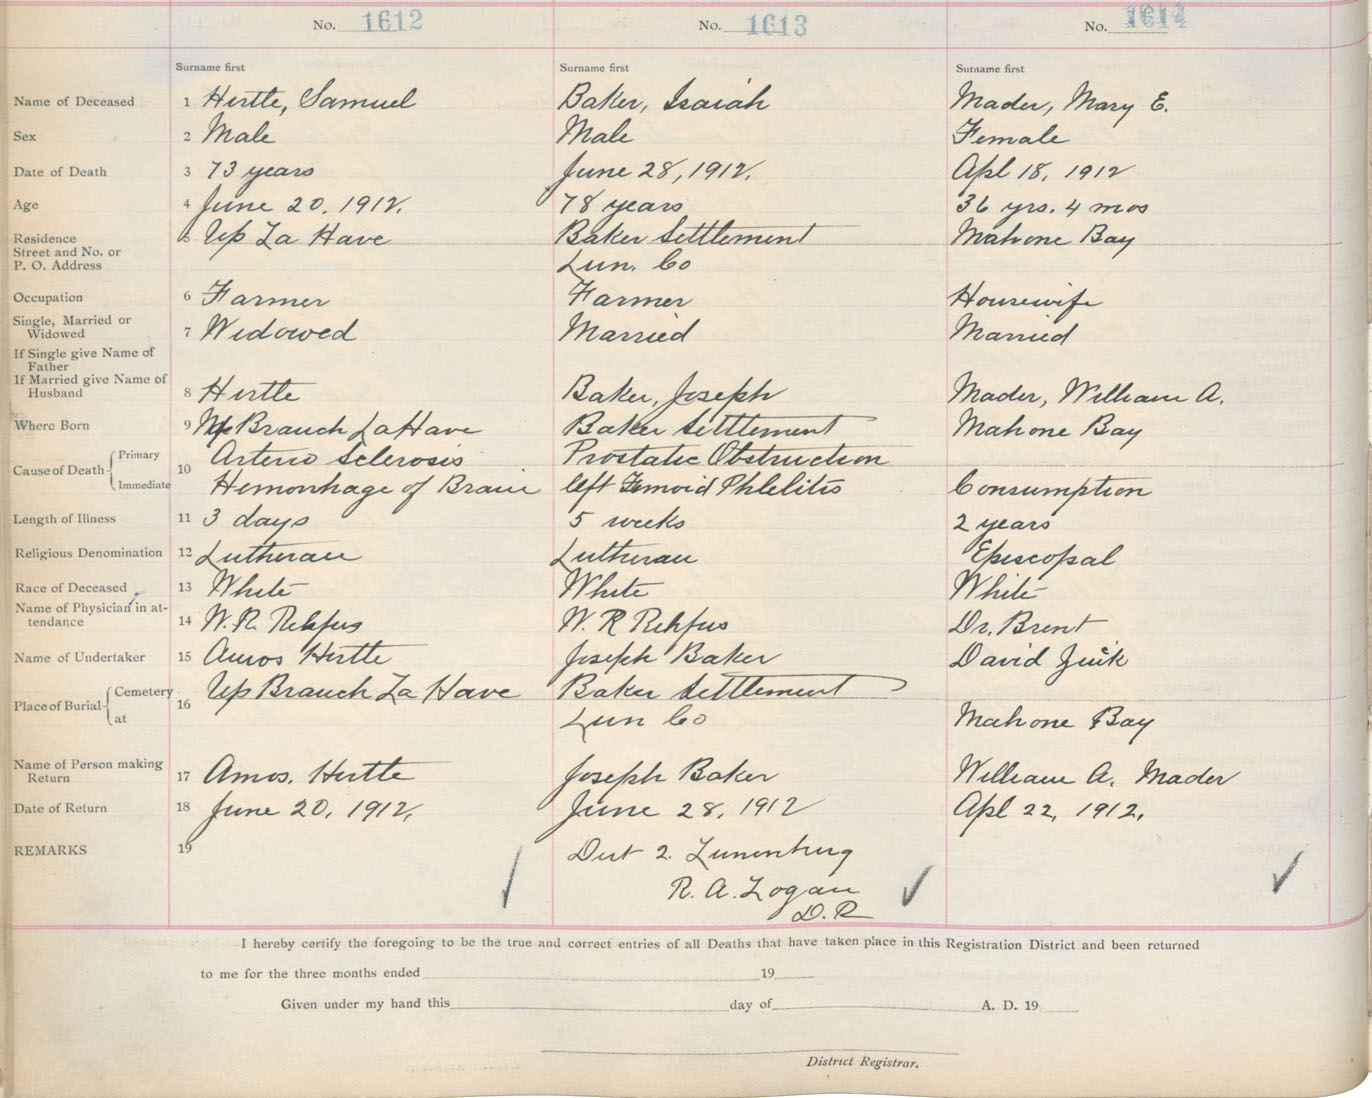 No. 1612 No. 1613 No. 1614
Surname first Surname first Surname first
Name of Deceased 1 Hirtle, Samuel Baker, Isaiah Mader, Mary E.
Sex 2 Male Male Female
Date of Death 3 73 years June 28, 1912. Apl 18, 1912
Age 4 June 20, 1912. 78 years 36 yrs. 4 mos
Residence 5 Up La Have Baker Settlement Mahone Bay
Street and No. or
P. O. Address Lun. Co
Occupation 6 Farmer Farmer Housewife
Single, Married or
Widowed 7 Widowed Married Married
If Single give Name of
Father
If Married give Name of
Husband 8 Hirtle Baker, Joseph Mader, William A.
Where Born 9 Up Branch LaHave Baker Settlement Mahone Bay
Cause of Death Primary 10 Arterio Sclerosis Prostatic Obstruction
Immediate Hemorrhage of Brain left Phlelitis Consumption
Length of Illness 11 3 days 5 weeks 2 years
Religious Denomination 12 Lutheran Lutheran Episcopal
Race of Deceased 13 White White White
Name of Physician in at-
tendance 14 W. R. Rehfus W. R Rehfus Dr. Brent
Name of Undertaker 15 Amos Hirtle Joseph Baker David
Place of Burial Cemetery 16 Up Branch La Have Baker Settlement
at Lun Co Mahone Bay
Name of Person making
Return 17 Amos. Hirtle Joseph Baker William A. Mader
Date of Return 18 June 20, 1912. June 28, 1912 Apl 22, 1912.
REMARKS 19 Dist 2. Lunenburg
R. A. Logan
D. R
I hereby certify the foregoing to be the true and correct entries of all Deaths that have taken place in this Registration District and been returned
to me for the three months ended 19
Given under my hand this day of A. D. 19
District Registrar.